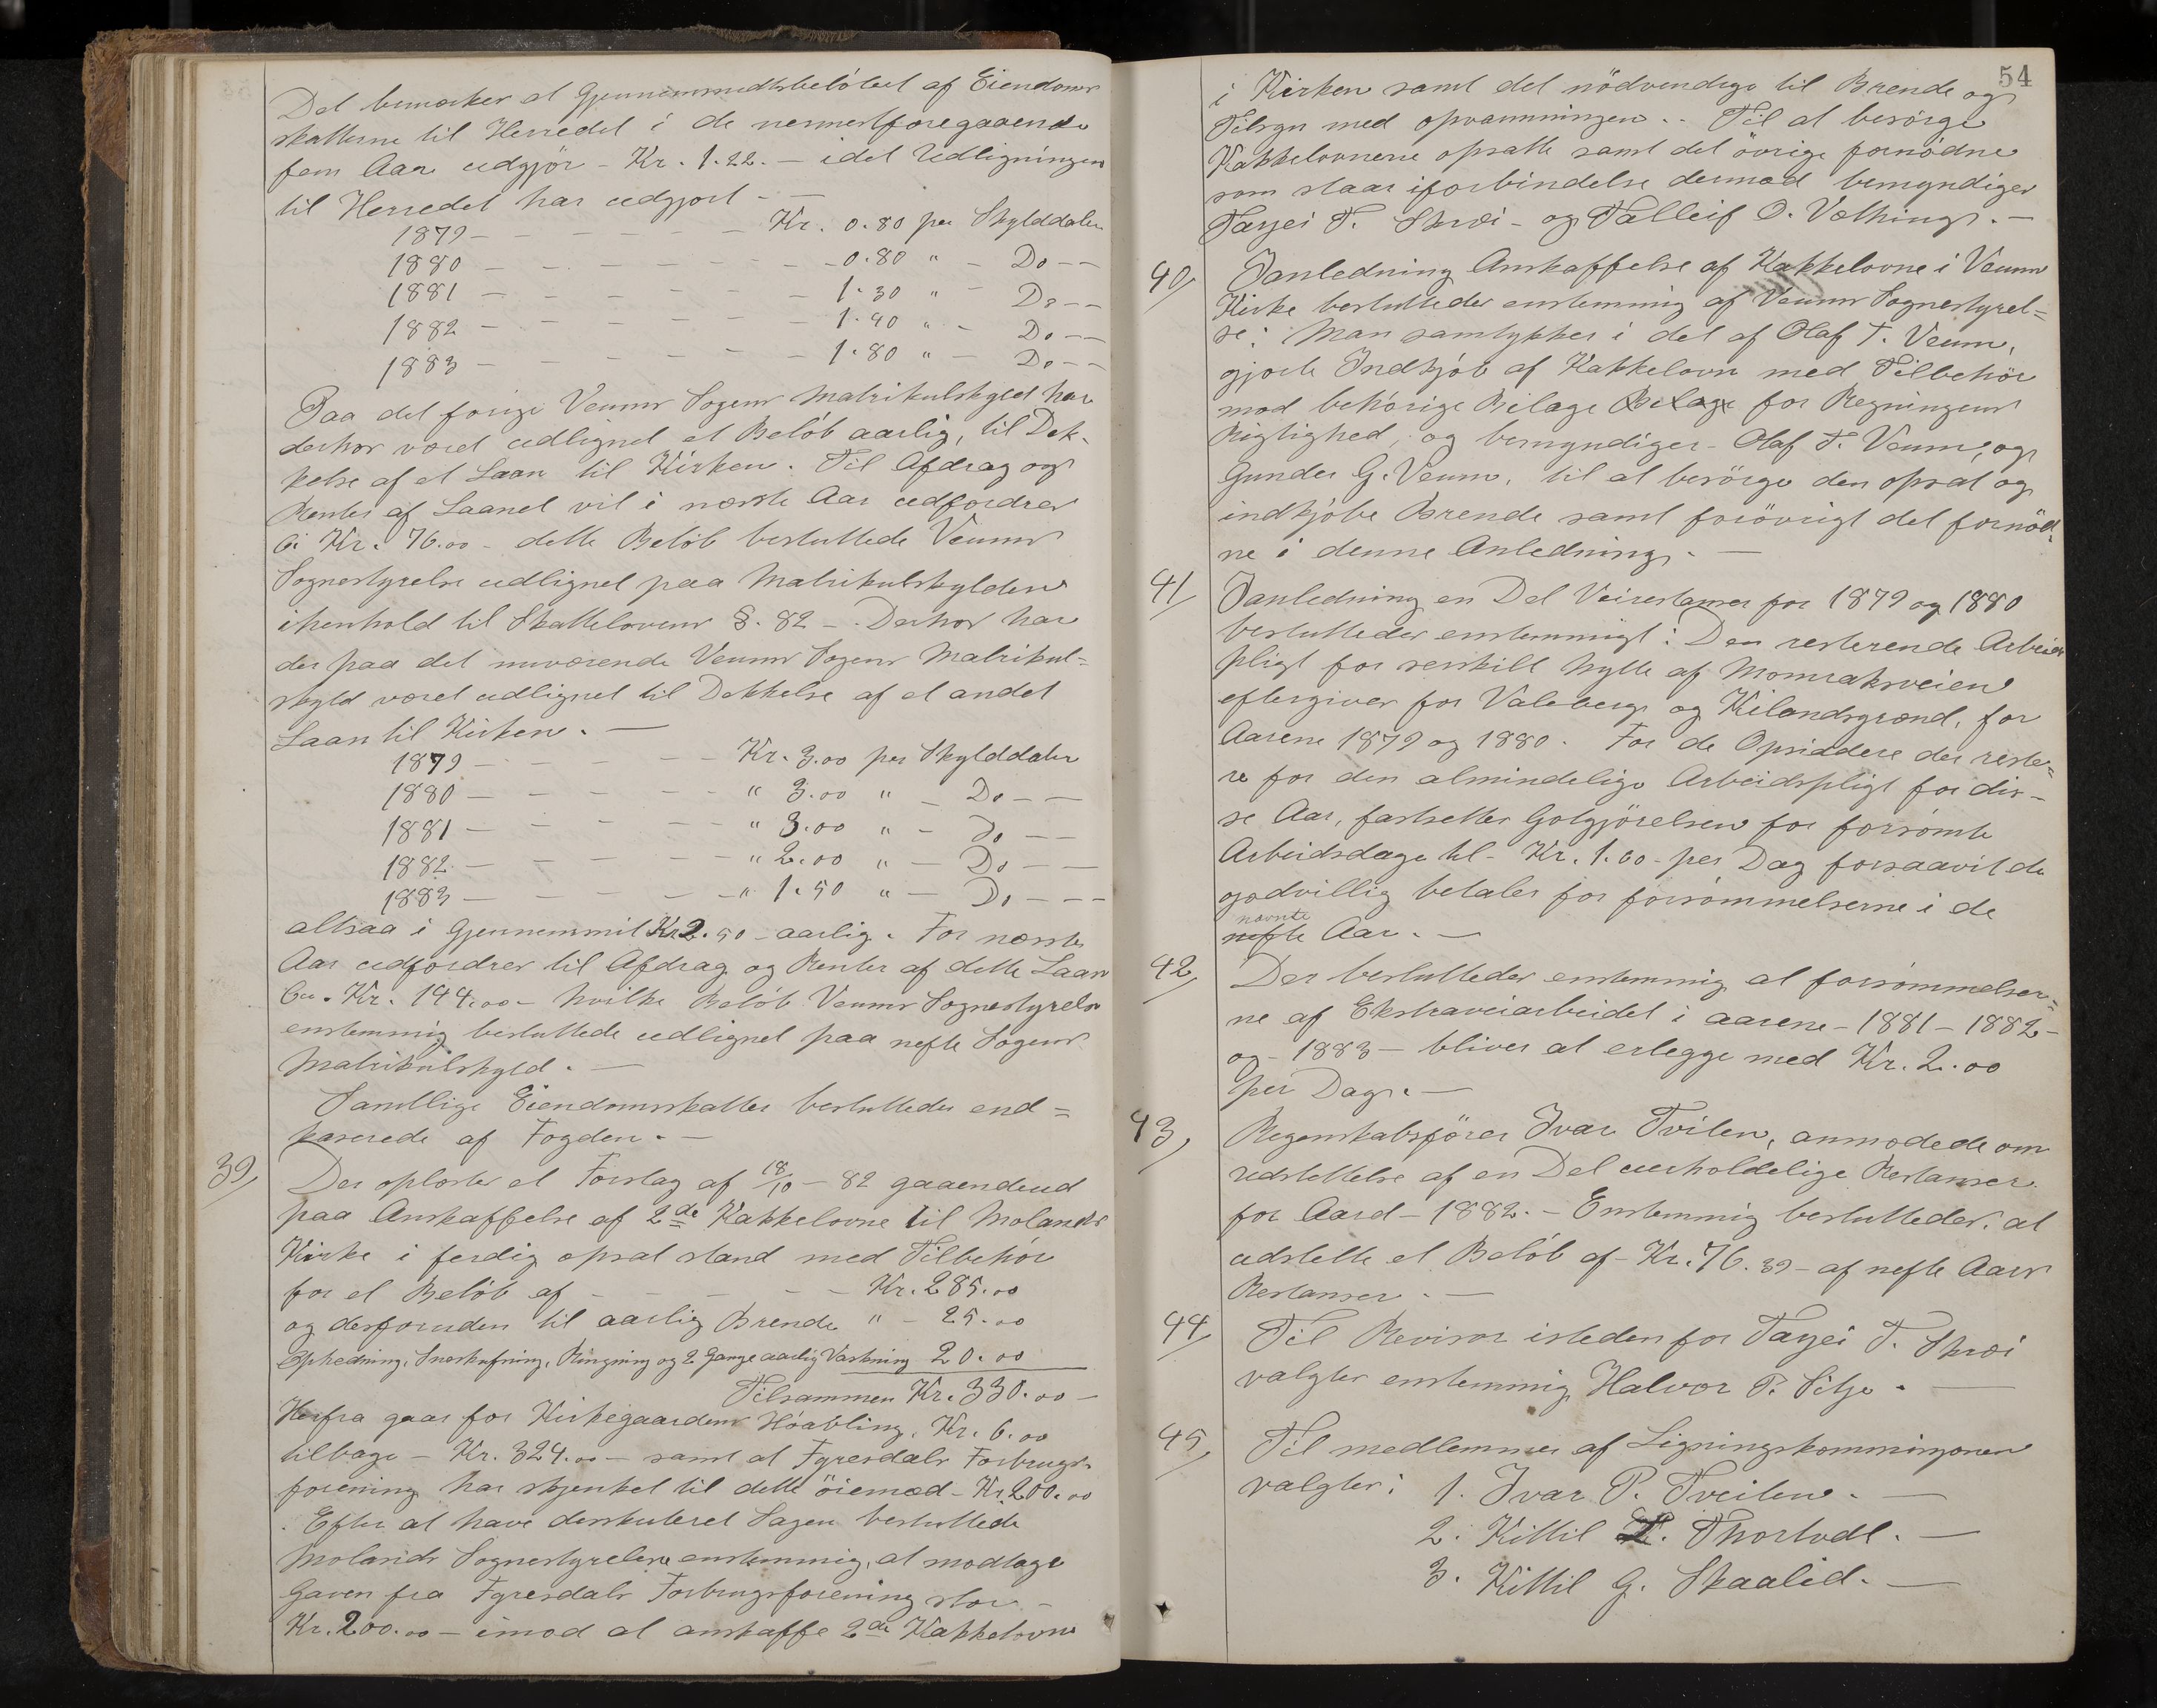 Det bemærkes at Gjennemsnitsbeløbet af Eiendoms
skatterne til Herredet i de nermestforegaaende
fem Aar udgjör - Kr. 1.22. - idet Udligningen
til Herredet har udgjort -
1879 - - - - - - Kr. 0.80 per Skylddaler
1880 - - - - - - - 0.80 " - Do - -
1881 - - - - - - - 1.30 " - Do - -
1882 - - - - - - - 1.40 " - Do - -
1883 - - - - - - 1.80 " - Do - -
Paa det forige Veums Sogns Matrikulskyld har
derhos været udlignet et Beløb aarlig, til Dek-
kelse af et Laan til Kirken. Til Afdrag og
Renter af Laanet vil i næste Aar udfordres
Kr. 76.00 - dette Beløb besluttede Veums
Sognestyrelse udlignet paa Matrikulskylden
ihenhold til Skattelovens §. 82 - Derhos har
der paa det nuværende Veums Sogns Matrikul=
skyld været udlignet til Dekkelse af et andet
Laan til Kirken. -
1879 - - - - - Kr. 3.00 per Skylddaler
1880 - - - - - - " 3.00 " - Do - -
1881 - - - - - - " 3.00 " - Do - -
1882 - - - - - " 2.00 " - Do - -
1883 - - - - - " 1.50 " - Do - - -
altsaa i Gjennemsnit Kr 2.50 - aarlig. For næste
Aar udfordres til Afdrag og Renter af dette Laan
Kr. 144.00 - hvilke Beløb Veums Sognestyrelse
enstemmig besluttede udlignet paa nefte Sogns
Matrikulskyld. -
Samtlige Eiendomsskatter besluttedes end=
kaserede af Fogden. -
39, Der oplæstes et Forslag af 18/10 - 82 gaaendeud
paa Anskaffelse af 2de Kakkelovne til Molands
Kirke i ferdig opsat stand med Tilbehör
for et Beløb af - - - - - Kr. 285.00
og desforuden til aarlig Brende " - 25.00
Ophedning, Sneskufning, Ringning og 2 Gange aarlig Vaskning 20.00
Tilsammen Kr. 330.00 -
Herfra gaar for Kirkegaardens Höabling, Kr. 6.00
tilbage - Kr. 324.00 - samt at Fyresdals Forbrugs-
forening har skjenket til dette öiemed - Kr. 200.00
Efter at have deskuteret Sagen besluttede
Molands Sognestyrelse enstemmig, at modtage
Gaven fra Fyresdals Forbrugsforening stor -
Kr. 200.00 - imod at anskaffe 2de Kakkelovne
54
i Kirken samt det nödvendige til Brende og
Tilsyn med opvarmningen. - Til at besörge
Kakkelovnene opsatte samt det övrige fornödne
som staar iforbindelse dermed bemyndiges
Tarjei T. Skrei - og Talleif O. Vælhing. -
40, Ianledning Anskaffelse af Kakkelovne i Veums
Kirke besluttedes enstemmig af Veums Sognestyrel=
se: Man samtykker i det af Olaf T. Veum,
gjorte Indkjöb af Kakkelovn med Tilbehör
mod behörige Bilage Bilage for Regningens
Rigtighed, og bemyndiges - Olaf T. Veum, og
Gunder G. Veum, til at besörge den opsat og
indkjöbe Brende samt forövrigt det fornöd-
ne i denne Anledning. -
41, Ianledning en Del Veirestanser for 1879 og 1880
besluttedes enstemmigt: Den resterende Arbeids
pligt for serskilt Nytte af Momraksveien
eftergives for Valeberg og Kilandsgrænd, for
Aarene 1879 og 1880. For de Opsiddere der reste=
re for den almindelige Arbeidspligt for dis-
se Aar, fastsettes Gotgjörelsen for forsömte
Arbeidsdage til - Kr. 1.00 - per Dag forsaavit de
godvillig betaler for forsömmelserne i de
nævnte
nefte Aar. -
42, Der besluttedes enstemmig at forsömmelser=
ne af Ekstraveiarbeidet i aarene - 1881 - 1882 -
og - 1883 - bliver at erlegge med Kr. 2.00
per Dag. -
43, Regnskabsförer Ivar Tvilen, anmodede om
udslettelse af en Del uerholdelige Restanser
for Aard - 1882. - Enstemmig besluttedes. at
udslette et Beløb af - Kr. 76.39 - af nefte Aars
Restanser. -
44, Til Revisor isteden for Tarjei T. Skrei
valgtes enstemmig Halvor P. Silje. -
45, Til medlemmer af Ligningskommisjonen
valgtes: 1. Ivar P. Tveiten. -
2. Kittil T. Thortvdl. -
3. Kittil G. Skaalid. -